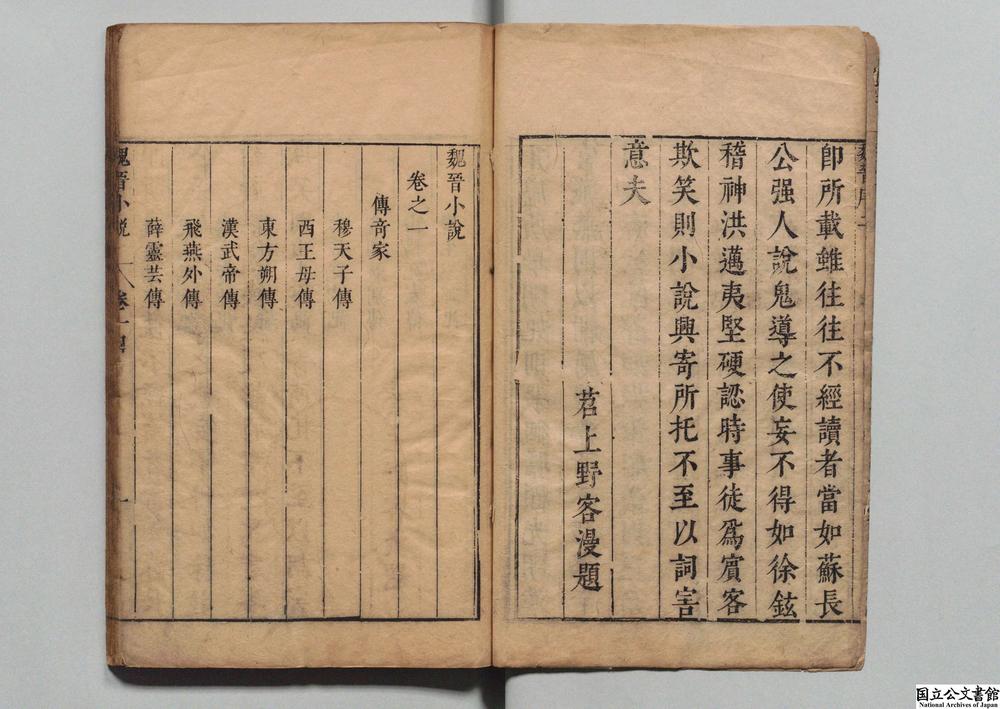 即所載雖往往不經讀者當如蘇長
公强人說鬼導之使妄不得如徐鉉
稽神洪邁夷堅硬認時事徒爲賓客
欺笑則小說興寄所托不至以詞害
意夫
苕上野客漫題
魏晉小說
卷之一
傳竒家
穆天子傳
西王母傳
東方朔傳
漢武帝傳
飛燕外傳
薛靈芸傳
魏晉小說
国立公文書館
National Archives of Japan